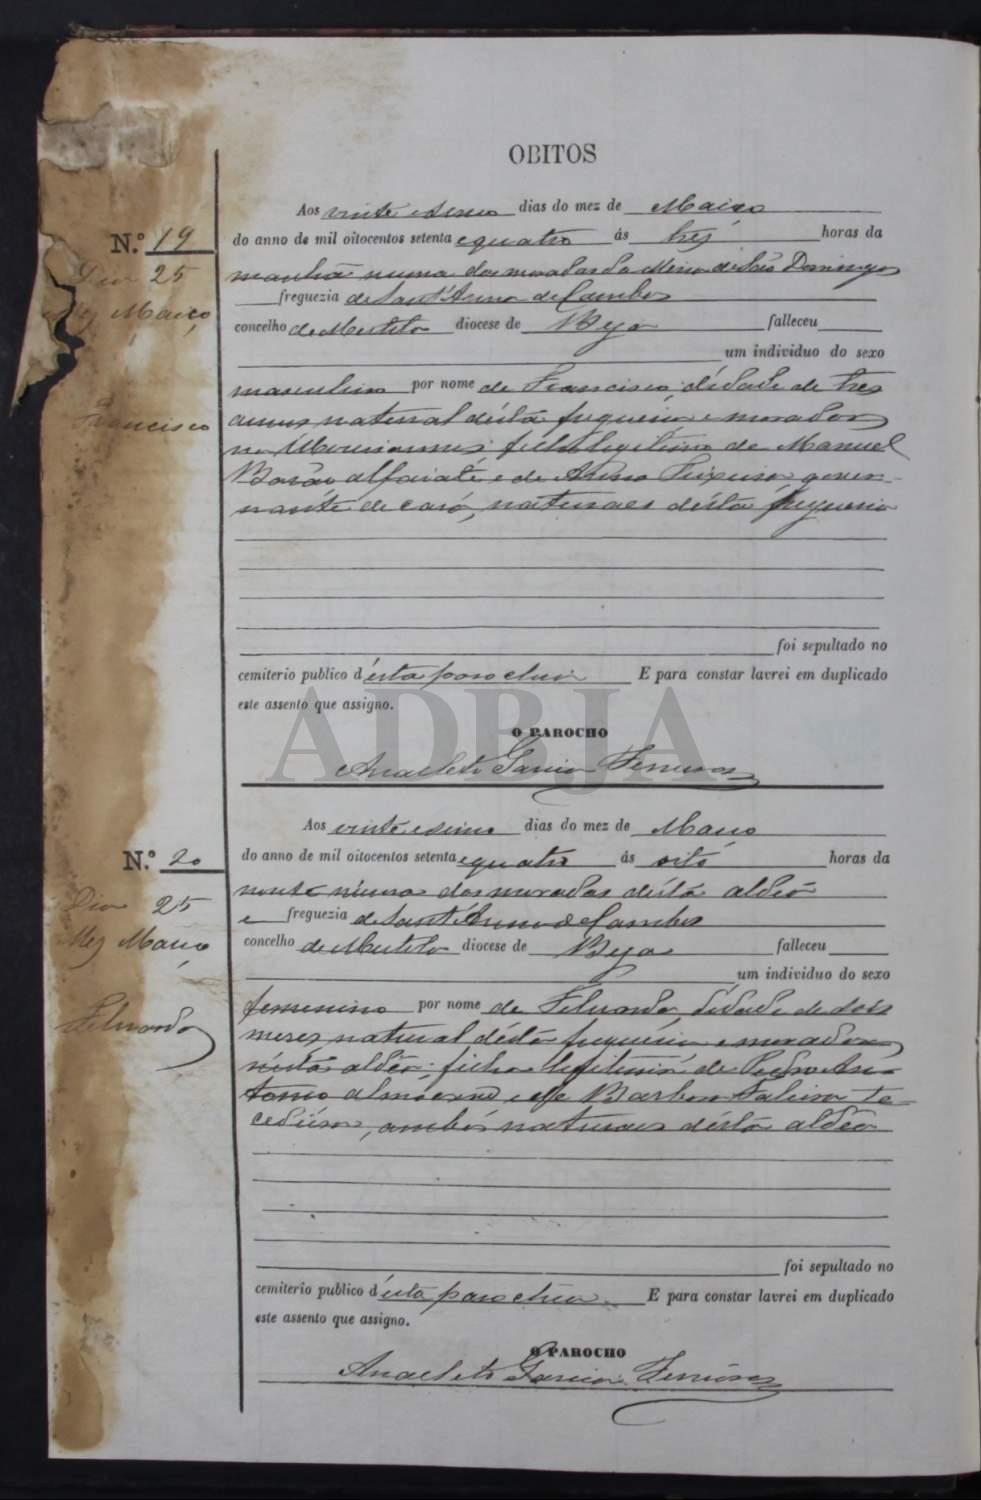 OBITOS
Aos vinte e sinco dias do mez de Maio
N.º 19
do anno de mil oitocentos setenta e quatro ás tres horas da
Dia 25
manhã numa das moradas da Mina de São Domingos
freguezia de Sant'Anna de Cambas
Mez Maio
concelho de Mertola diocese de Beja falleceu
um individuo do sexo
masculino por nome de Francisco, d'idade de tres
Francisco
annos natural d'ésta freguezia e morador
filho legitimo de Manuel
Barão alfaiate e de Anna Teixeira, gover-
nante de casa, naturaes d'ésta freguezia
foi sepultado no
cemiterio publico d'ésta parochia E para constar lavrei em duplicado
este assento que assigno.
O PAROCHO
Anacleto Garcia
ADBJA
Aos vinte e sinco dias do mez de Maio
N.º 20
do anno de mil oitocentos setenta e quatro ás oito horas da
Dia 25
noute numa das moradas d'ésta aldêa
e freguezia de Sant'Anna de Cambas
Mez Maio
concelho de Mertola diocese de Beja falleceu
um individuo do sexo
femenino por nome de Feluarda, d'idade de dois
Feluarda
mezes natural d'ésta freguezia e moradora
nésta aldêa, filha legitima de Pedro An-
tonio e de Barbara te-
cedeira, ambos naturaes d'ésta aldêa
foi sepultado no
cemiterio publico d'ésta parochia E para constar lavrei em duplicado
este assento que assigno.
O PAROCHO
Anacleto Garcia